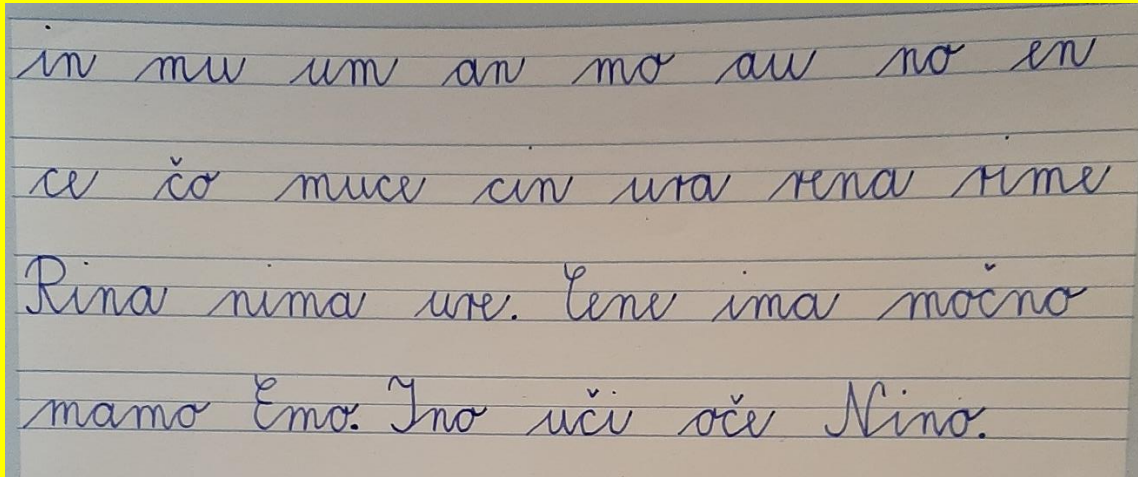 in mu um an mo au no en
ce čo muce cin ura rena rime
Rina nima ure. Cene ima močno
mamo Emo. Ino uči oče Nino.